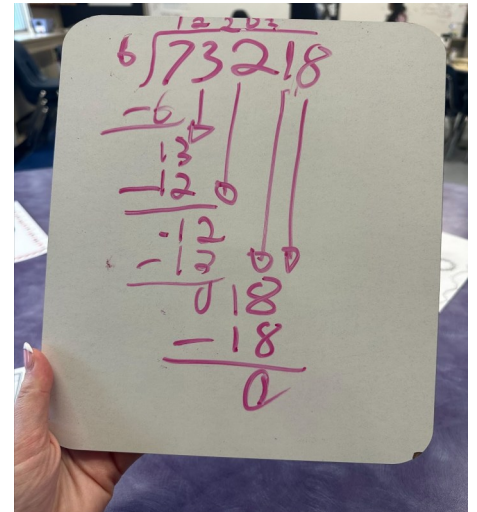 12203
6)73218
-6
13
-12
12
-12
018
-18
0